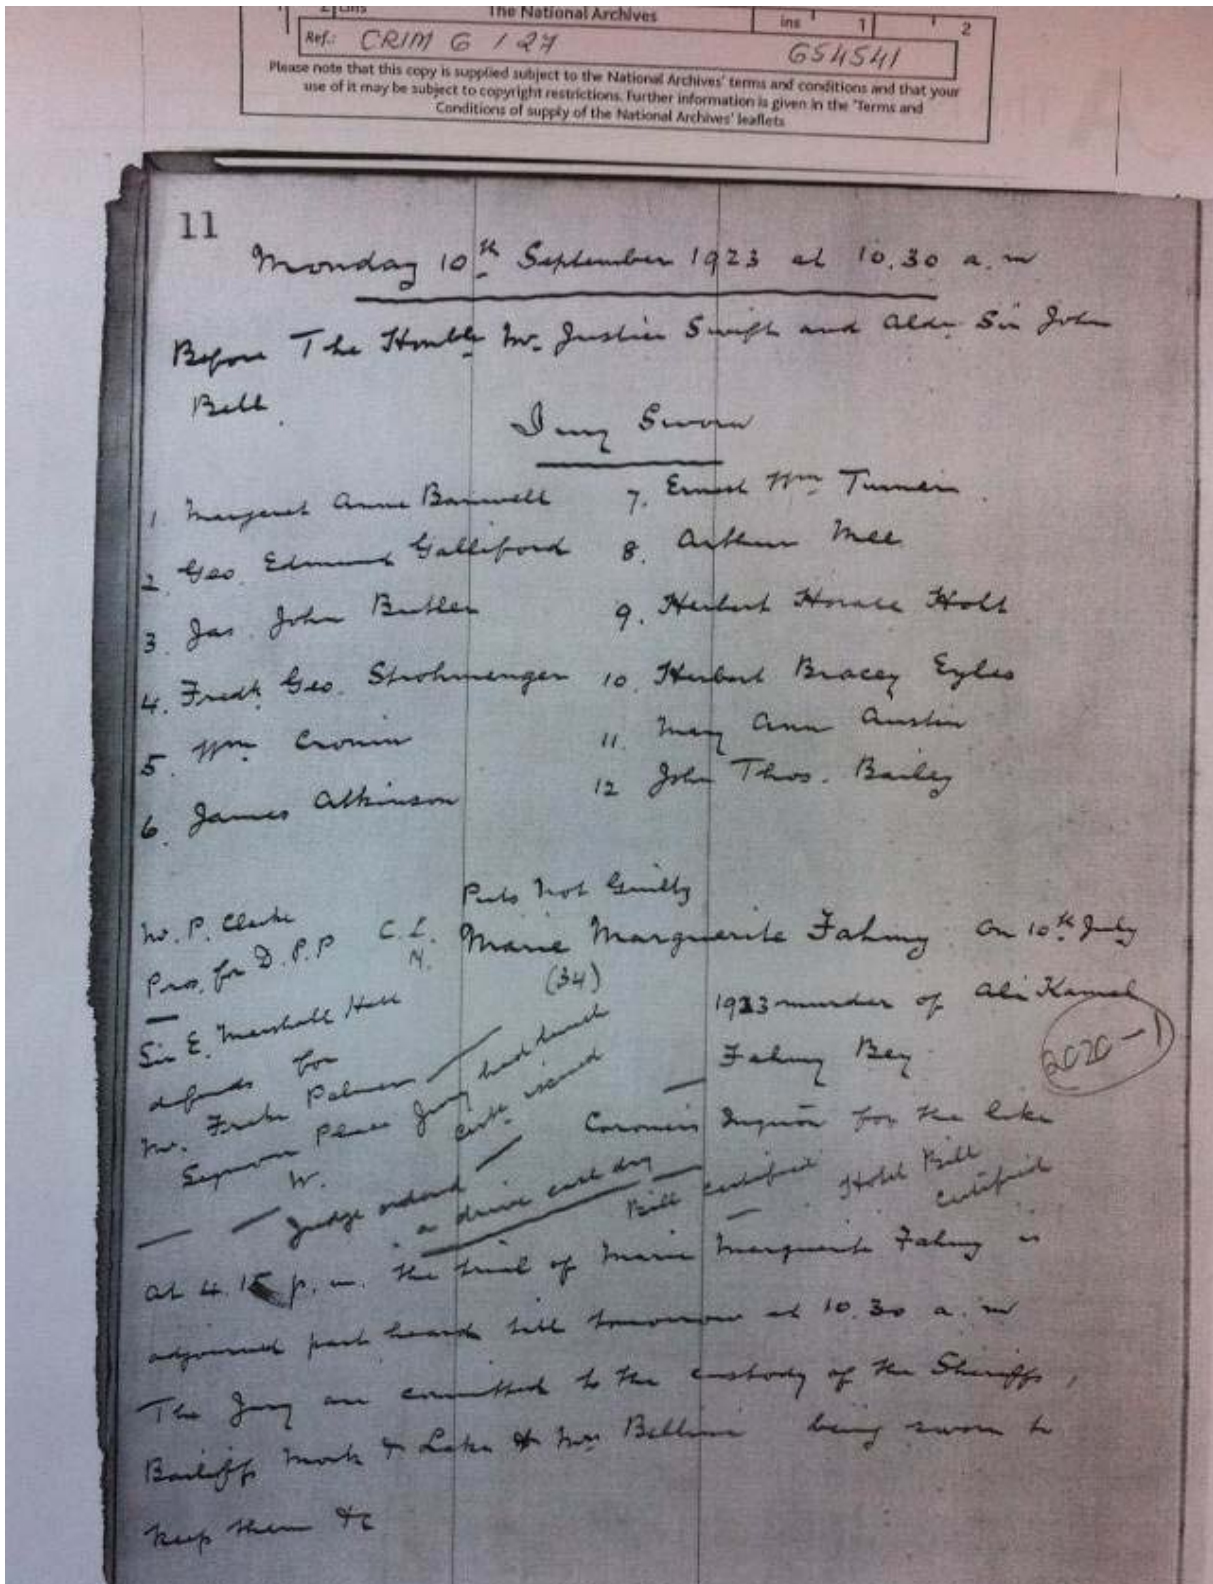 The National Archives
ins 1 2
Ref.: CRIM 6 / 27
654541
Please note that this copy is supplied subject to the National Archives' terms and conditions and that your
use of it may be subject to copyright restrictions. Further information is given in the 'Terms and
Conditions of supply of the National Archives' leaflets
11
Monday 10th September 1923 at 10.30 a.m
Before The Honble Mr. Justice Swift and Aldn Sir John
Bell.
Jury Sworn
1 Margaret Anne Banwell
2. Geo. Edmund Galliford
3 Jas. John Butler
4. Fredk Geo. Strohmenger
5. Wm Cronin
6. James Atkinson
7. Ernest Wm Turner
8. Arthur Mee
9. Herbert Horace Holt
10. Herbert Bracey Eyles
11. Mary Ann Austin
12 John Thos. Bailey
Puts Not Guilty
Mr. P. Clarke
Pros. for D.P.P
Sir E. Marshall Hall
defends for
Mr. Freke Palmer
Seymour Place
W.
Jury had lunch
Certe issued
Judge ordered
a drive each day
C.C.
Marie Marguerite Fahmy
(34)
On 10th July
1923 murder of Ali Kamel
Fahmy Bey
2020-1
Coroners Inquon for the like
Bill certified
Hotel Bill
certified
At 4.15 p.m. the trial of Marie Marguerite Fahmy is
adjourned part heard till tomorrow at 10.30 a.m
The Jury are committed to the custody of the Sheriffs,
Bailiffs Monk & Lake & Mrs being sworn to
keep them &c